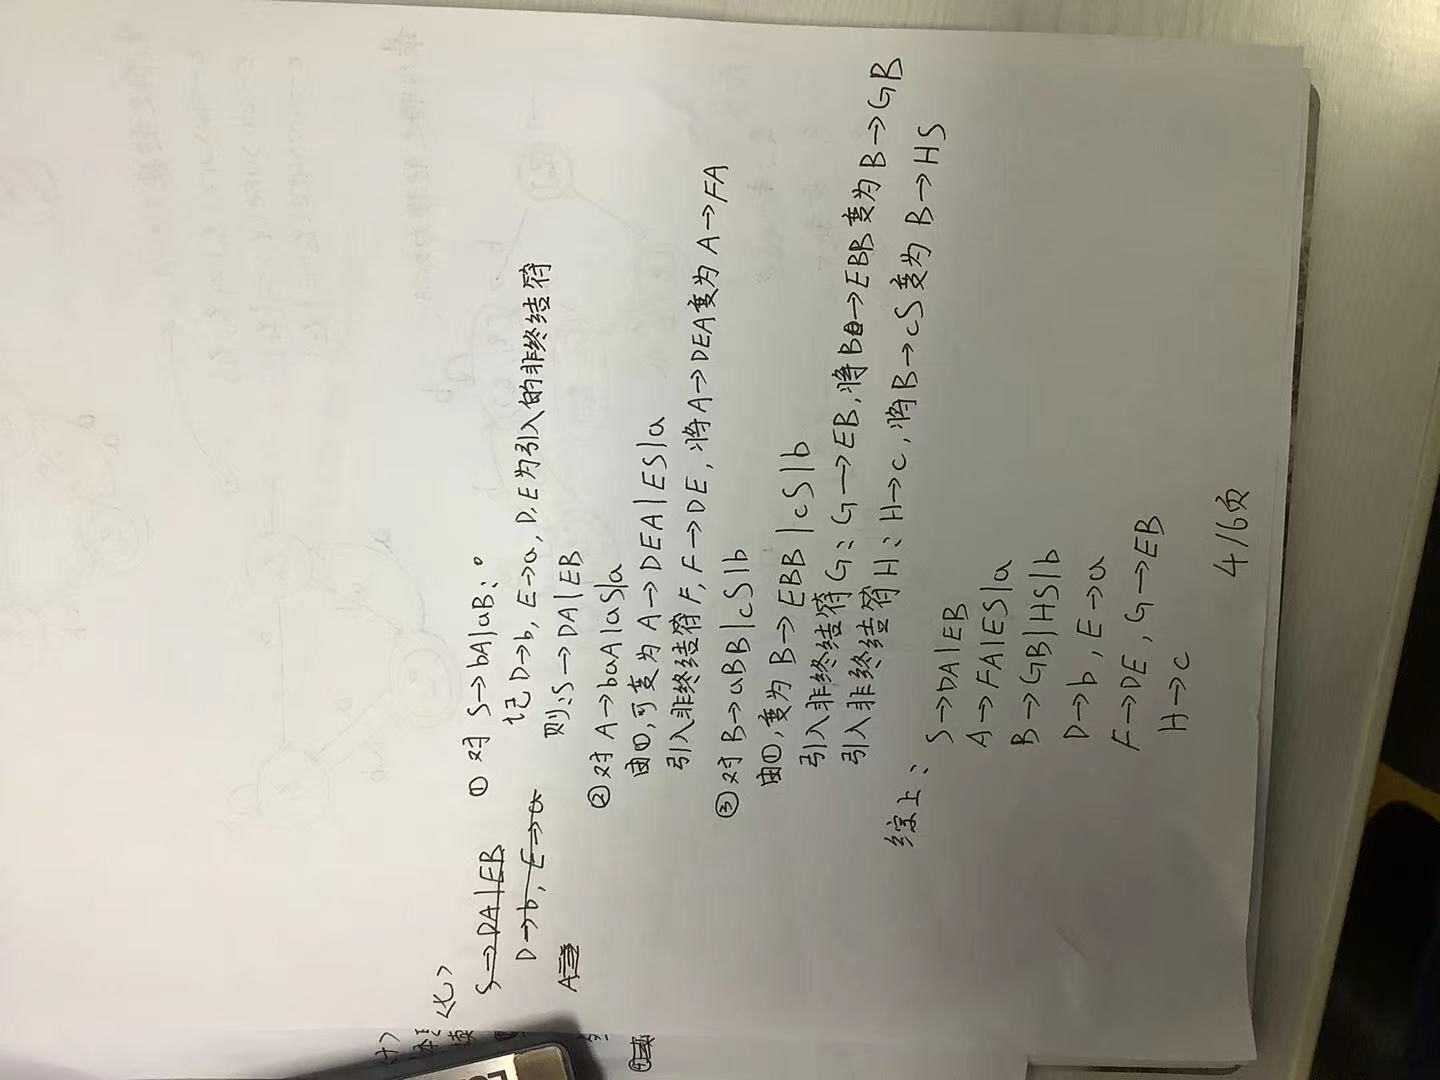 <七>
S→DA|EB
D→b, E→a
① 对 S→bA|aB:
记 D→b, E→a, D,E为引入的非终结符
则:S→DA|EB
② 对 A→baA|aS|a
由①,可变为 A→DEA|ES|a
引入非终结符 F, F→DE, 将 A→DEA变为 A→FA
③ 对 B→aBB|cS|b
由①,变为 B→EBB|cS|b
引入非终结符 G: G→EB, 将B→EBB变为 B→GB
引入非终结符 H: H→c, 将 B→cS变为 B→HS
综上:
S→DA|EB
A→FA|ES|a
B→GB|HS|b
D→b, E→a
F→DE, G→EB
H→c
4/6页